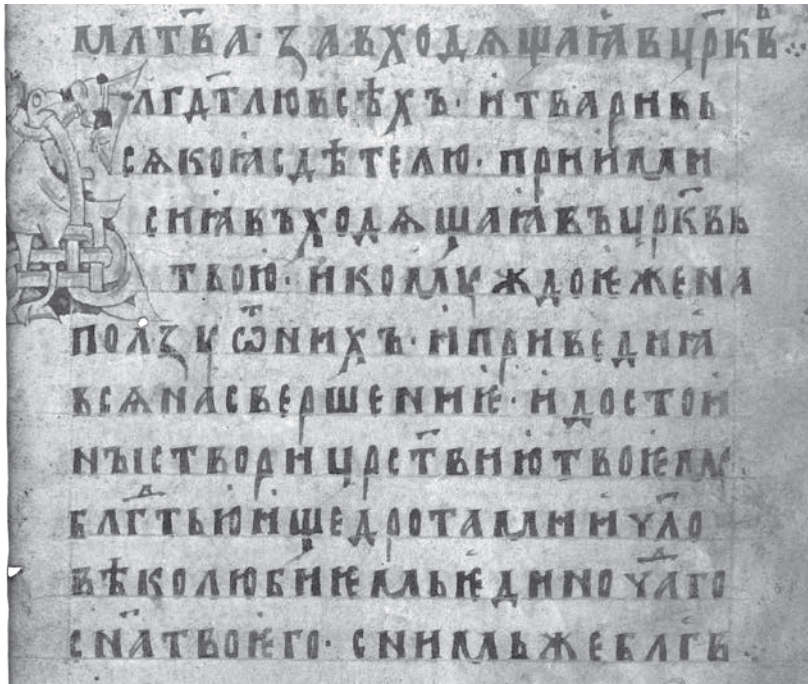 млт҃ва· за входѧщаꙗ в цр҃кв҃·:
Блг҃дт҃лю всѣхъ· и твари вь
сѧкоꙗ сдѣтелю· приими
сиꙗ въходѧщаꙗ въ цр҃квь
твою· и комуждо ѥже на
ползу ѿ нихъ· и приведи ꙗ
всѧ на свершениѥ· и достои
ны створи црст҃вию твоѥмꙋ·
блг҃дтью и щедротами и чл҃о
вѣколюбиѥмь ѥдиночадаго
сн҃а твоѥго· с нимьже блг҃в